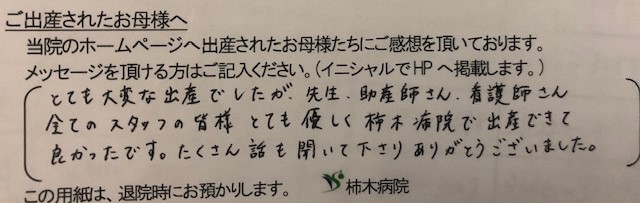 ご出産されたお母様へ
当院のホームページへ出産されたお母様たちにご感想を頂いております。
メッセージを頂ける方はご記入ください。(イニシャルでHPへ掲載します。)
とても大変な出産でしたが、先生、助産師さん、看護師さん
全てのスタッフの皆様 とても優しく 柿木病院で出産できて
良かったです。たくさん話も聞いて下さり ありがとうございました。
この用紙は、退院時にお預かりします。 柿木病院